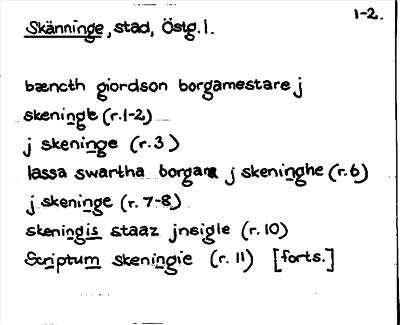 1-2.
Skänninge, stad, Östg.l.
bæncth giordson borgamestare j
skeningbe (r.1-2)
j skeninge (r.3)
lassa swartha borgara j skeninghe (r.6)
j skeninge (r.7-8)
skeningis staaz jnsigle (r.10)
Scriptum skeningie (r.11) [forts.]